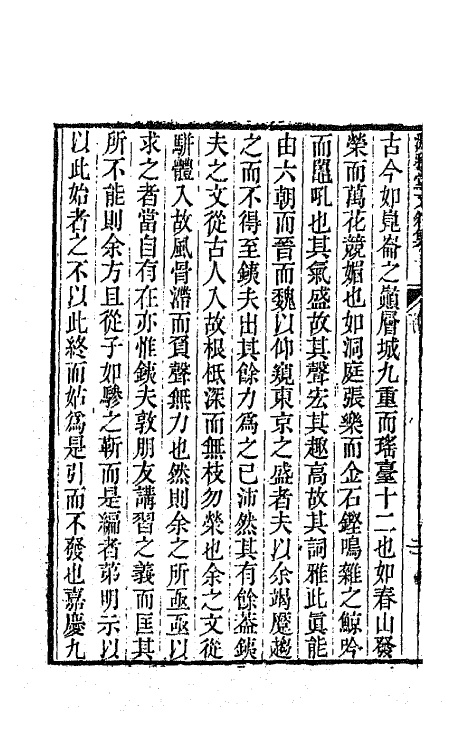 古今如崑崙之巔層城九重而瑤臺十二也如春山發
榮而萬花競媚也如洞庭張樂而金石鏗鳴雜之鯨吟
而鼉吼也其氣盛故其聲宏其趣高故其詞雅此眞能
由六朝而晉而魏以仰窺東京之盛者夫以余竭蹷趨
之而不得至鐵夫出其餘力爲之已沛然其有餘葢鐵
夫之文從古人入故根柢深而無枝勿榮也余之文從
駢體入故風骨滯而負聲無力也然則余之所亟亟以
求之者當自有在亦惟鐵夫敦朋友講習之義而匡其
所不能則余方且從子如驂之靳而是編者第明示以
以此始者之不以此終而姑爲是引而不發也嘉慶九